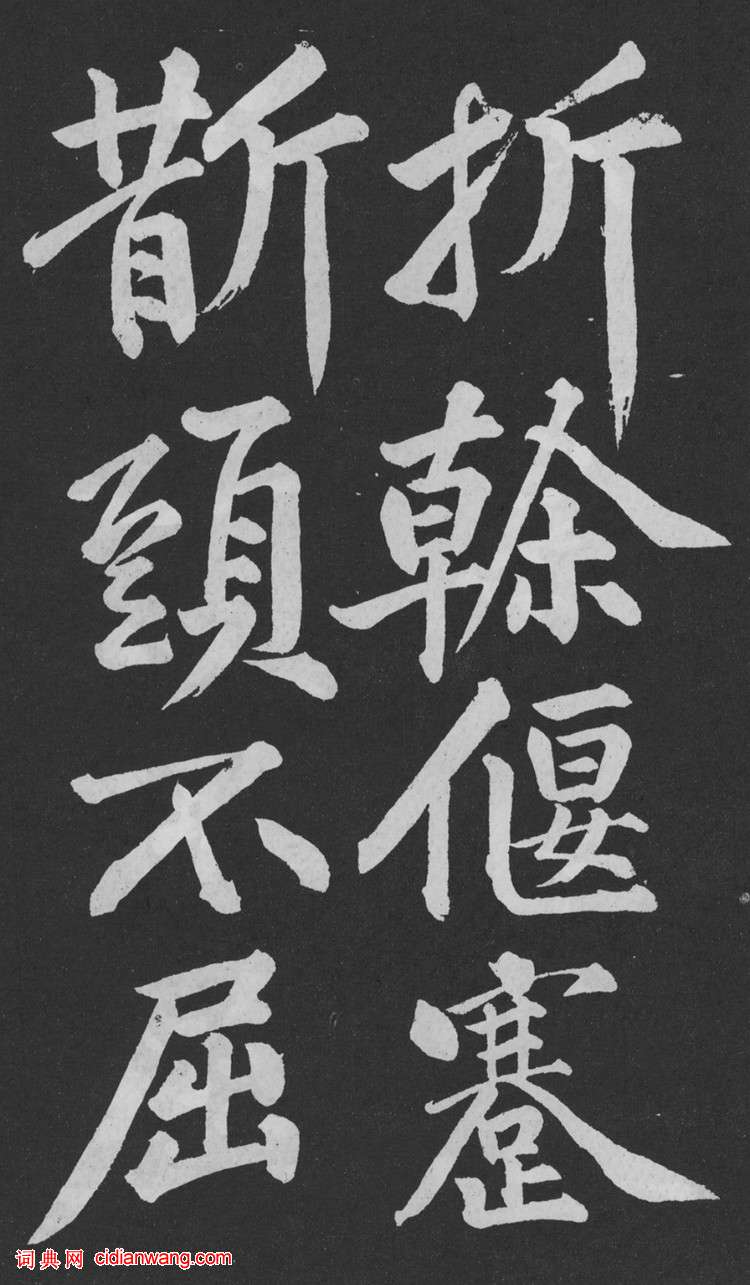 折榦偃蹇
斮頭不屈
词典网 cidianwang.com